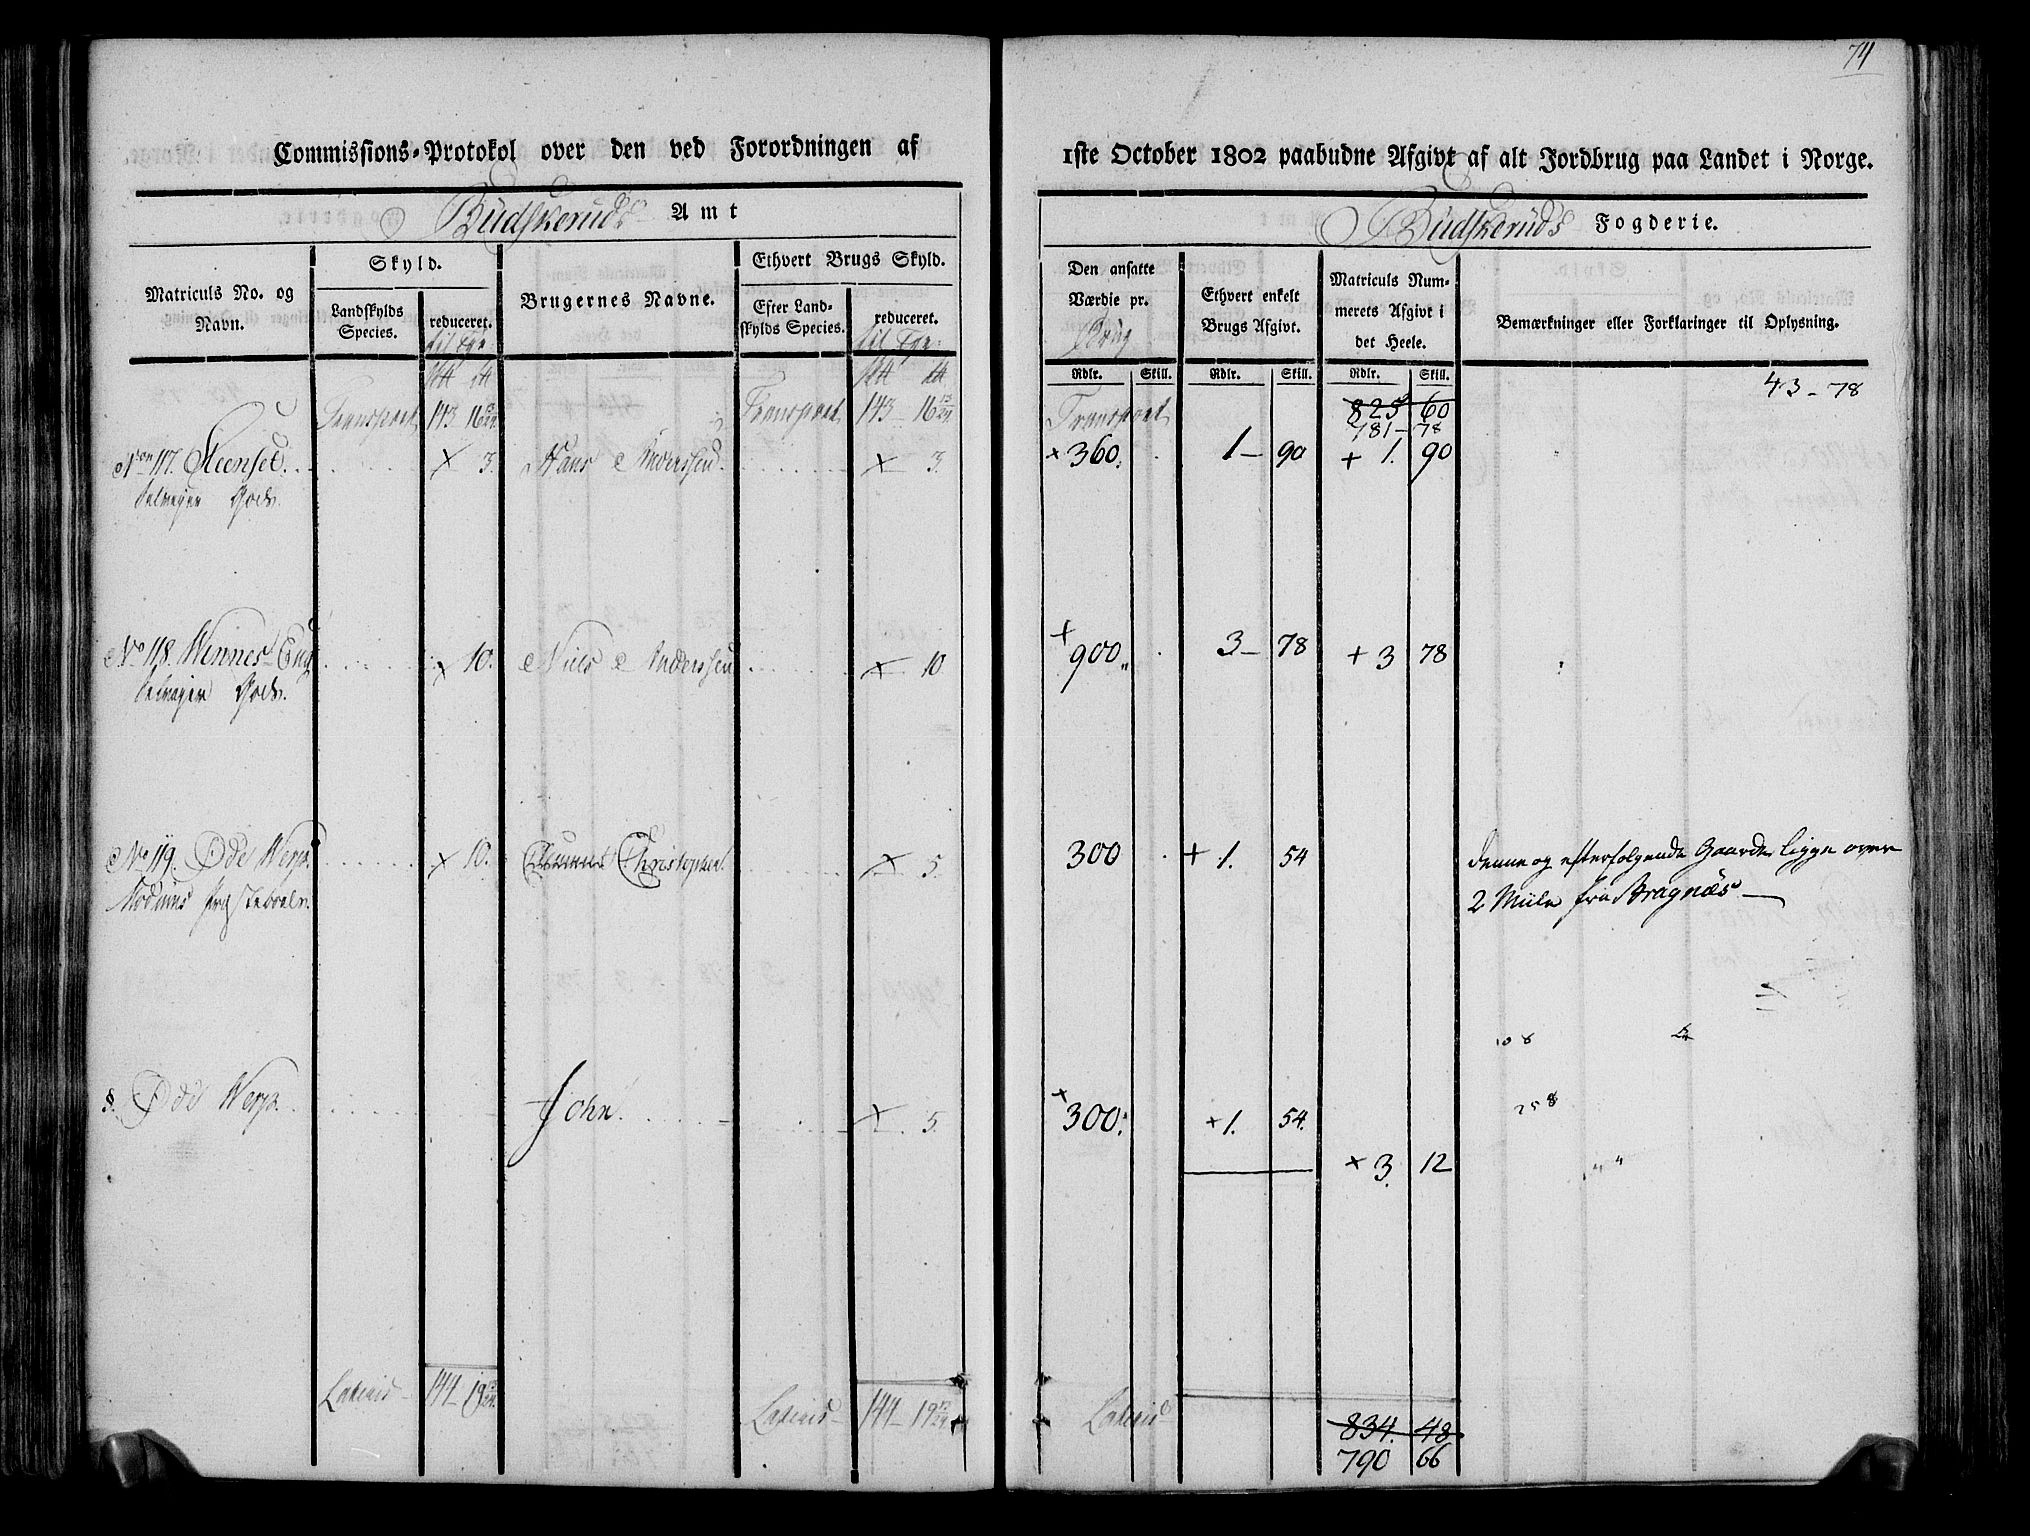 74
Commissions-Protokol over den ved Forordningen af
1ste October 1802 paabudne Afgivt af alt Jordbrug paa Landet i Norge.
Budskeruds Amt
Budskeruds Fogderie.
Matriculs No. og Navn.
Skyld.
Landskylds Species.
reduceret.
til Tge:
Brugernes Navne.
Ethvert Brugs Skyld.
Efter Landskylds Species.
reduceret.
til Tge:
Den ansatte Værdie pr.
Brug
Ethvert enkelt Brugs Afgivt.
Matriculs Nummerets Afgivt i det Heele.
Bemærkninger eller Forklaringer til Oplysning.
Rdlr. Skill. Rdlr. Skill. Rdlr. Skill.
43-78
Transport 143 16 Transport 143-16 Transport 825 60
781-78
No 117. Steenset. × 3. Hans Anderssen × 3. × 360. 1-90 + 1. 90
Selveyer Gods.
No 118. Wennes Eng × 10. Niels Anderssen × 10 + 900 3-78 + 3 78
Selveyer Gods.
No 119. Øde Werp × 10. Christopher × 5. 300 + 1. 54 denne og efterfølgende Gaarde ligge over
2 Miile fra Bragnæs
Modums
108
§. Øde Werp. John. × 5. × 300. + 1. 54. 258
× 3. 12
Lateris 144-19 Lateris 144-19 Lateris
834. 48
790 66